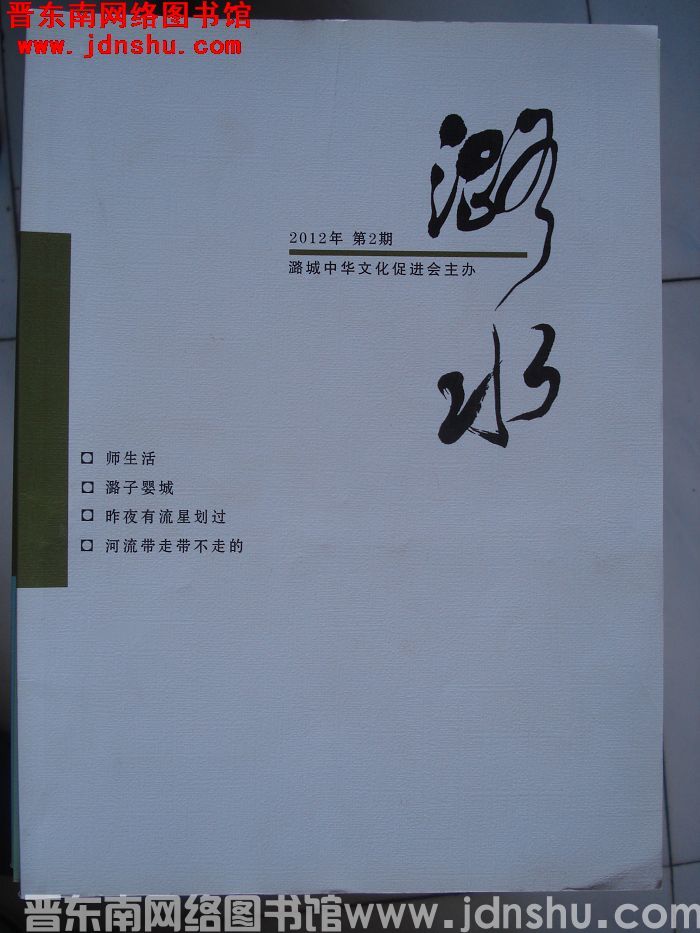 晋东南网络图书馆
www.jdnshu.com
潞水
2012年 第2期
潞城中华文化促进会主办
师生活
潞子婴城
昨夜有流星划过
河流带走带不走的
晋东南网络图书馆www.jdnshu.com